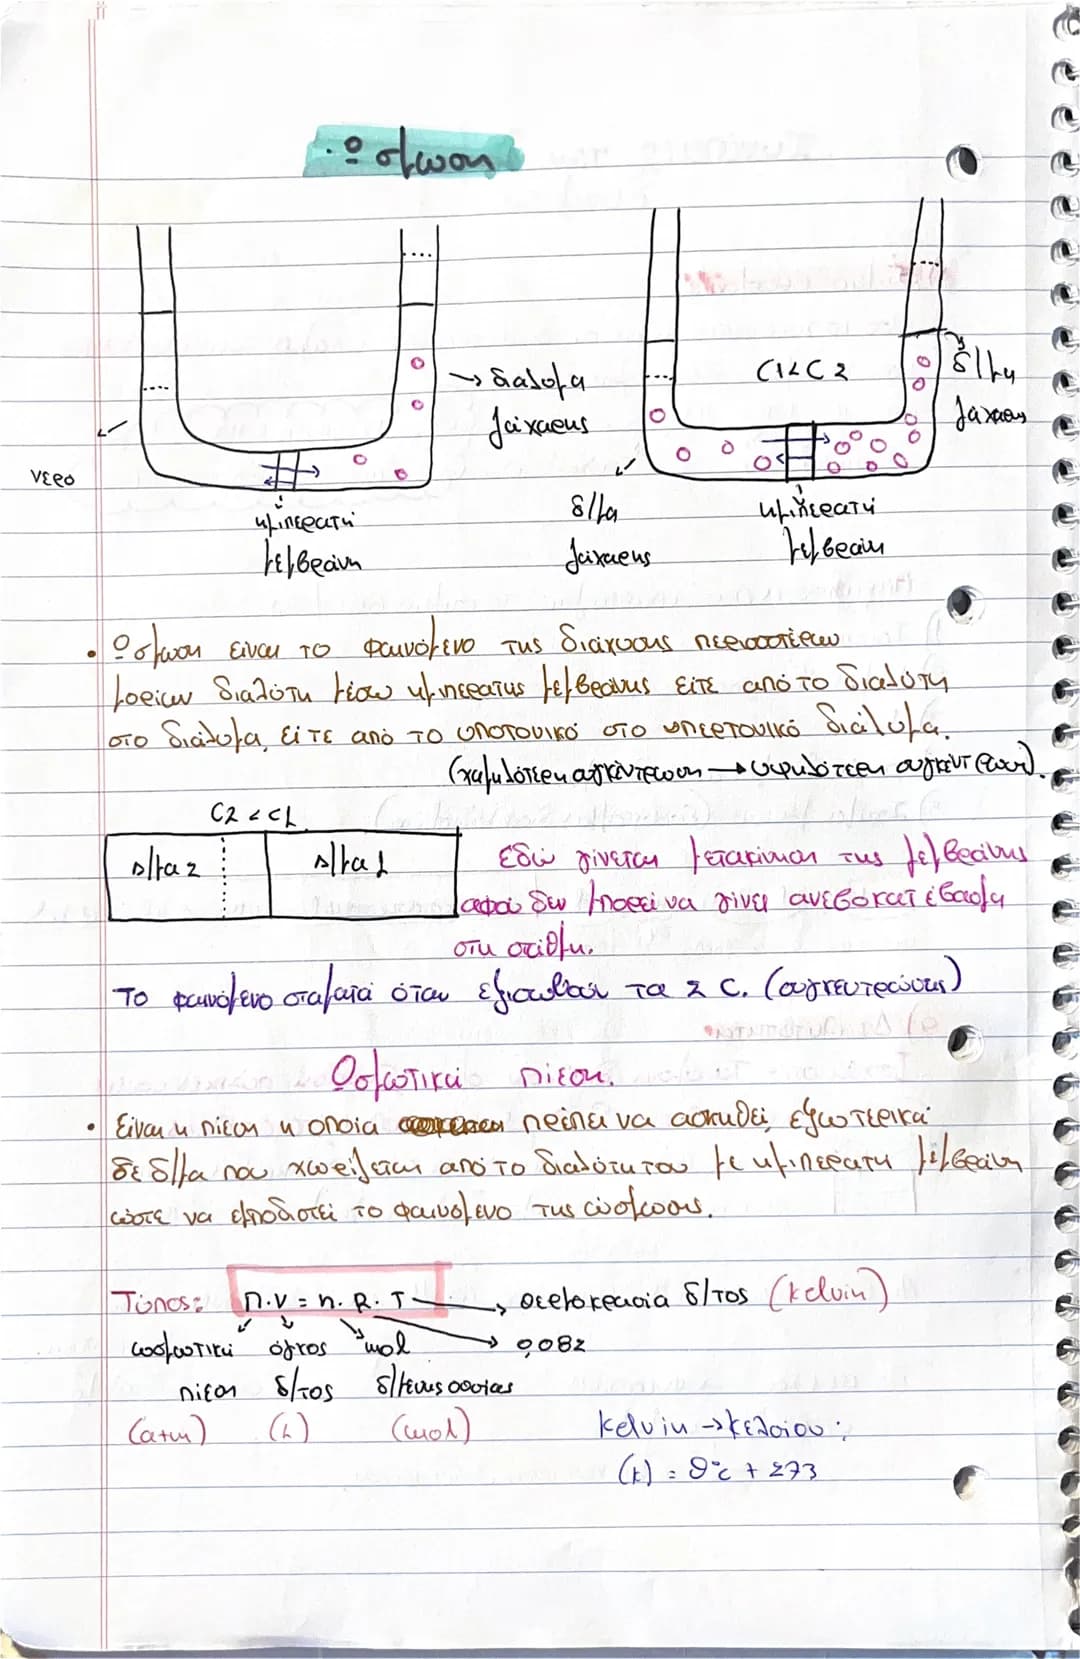 · Ώσμωση
→ διάλυμα
ζάχαρης
νερό
ημιπερατή
μεμβράνη
C1<C2
δ/μα
ζάχαρης
δ/μα
ζάχαρης
ημιπερατή
μεμβράνη
• Ώσμωση είναι το φαινόμενο της διάχυσης περισσοτέρων
μορίων διαλύτη μέσω ημιπερατής μεμβράνης είτε από το διαλύτη
στο διάλυμα, είτε από το υποτονικό στο υπερτονικό διάλυμα.
(χαμηλότερη συγκέντρωση → υψηλότερη συγκέντρωση).
C2 < C1
Δ/μα 2
Δ/μα 1
Εδώ γίνεται μετακίνηση της μεμβράνης
αφού δεν μπορεί να γίνει ανεβοκατέβασμα
στη στάθμη.
Το φαινόμενο σταματά όταν εξισωθούν τα 2 C. (συγκεντρώσεις)
Οσμωτική πίεση.
• Είναι η πίεση η οποία πρέπει να ασκηθεί εξωτερικά
σε δ/μα που χωρίζεται από το διαλύτη του με ημιπερατή μεμβράνη
ώστε να εμποδιστεί το φαινόμενο της ώσμωσης.
Τύπος: Π.V = n. R. T → θερμοκρασία δ/τος (kelvin)
ωσμωτική όγκος mol → 0,082
πίεση δ/τος δ/μενης ουσίας
(atm) (L) (mol)
kelvin → κελσίου:
(k) = θ°c + 273